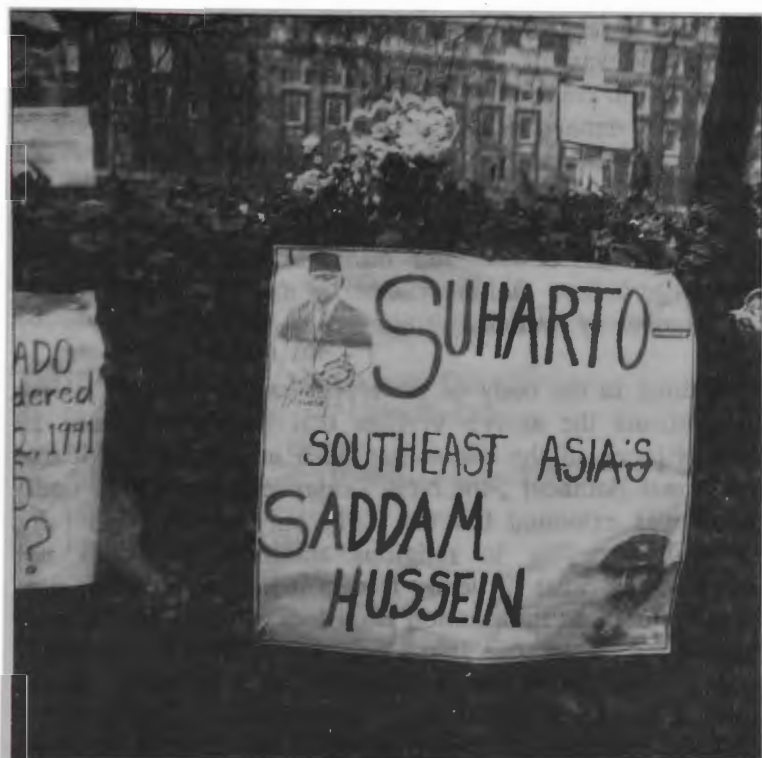 ADO
dered
2, 1991
?
SUHARTO-
SOUTHEAST ASIA'S
SADDAM
HUSSEIN